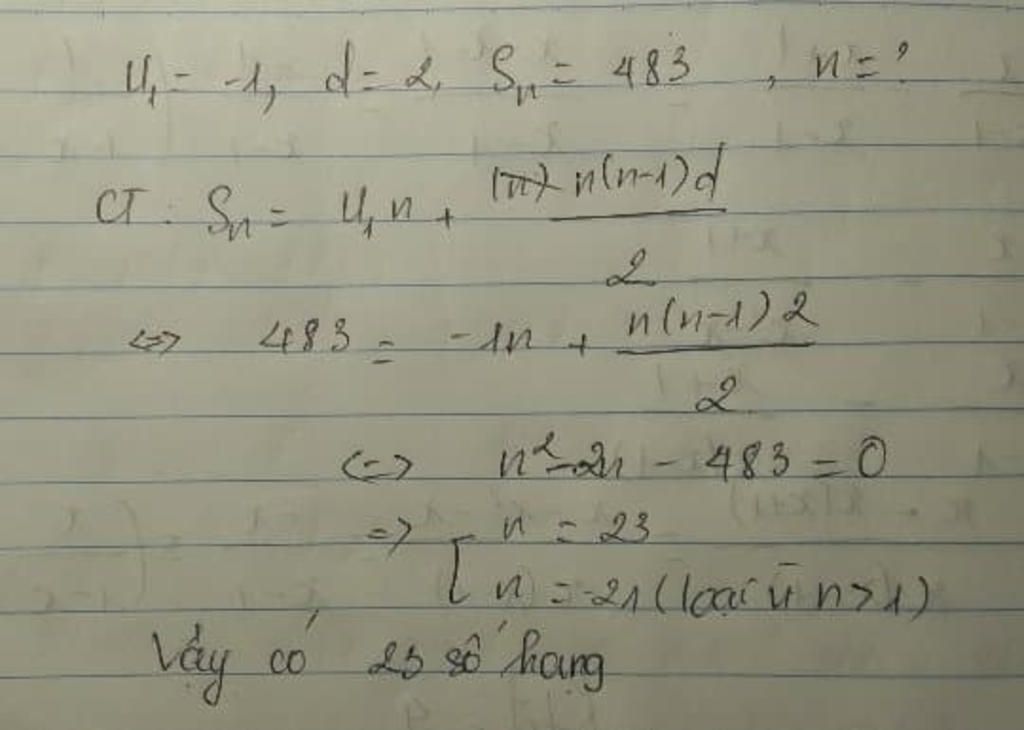 U₁ = -1, d = 2, Sₙ = 483 , n = ?
CT : Sₙ = U₁n + n(n-1)d / 2
<=> 483 = -1n + n(n-1)2 / 2
<=> n² - 2n - 483 = 0
=> [ n = 23
n = -21 (loại vì n > 1)
Vậy có 23 số hạng